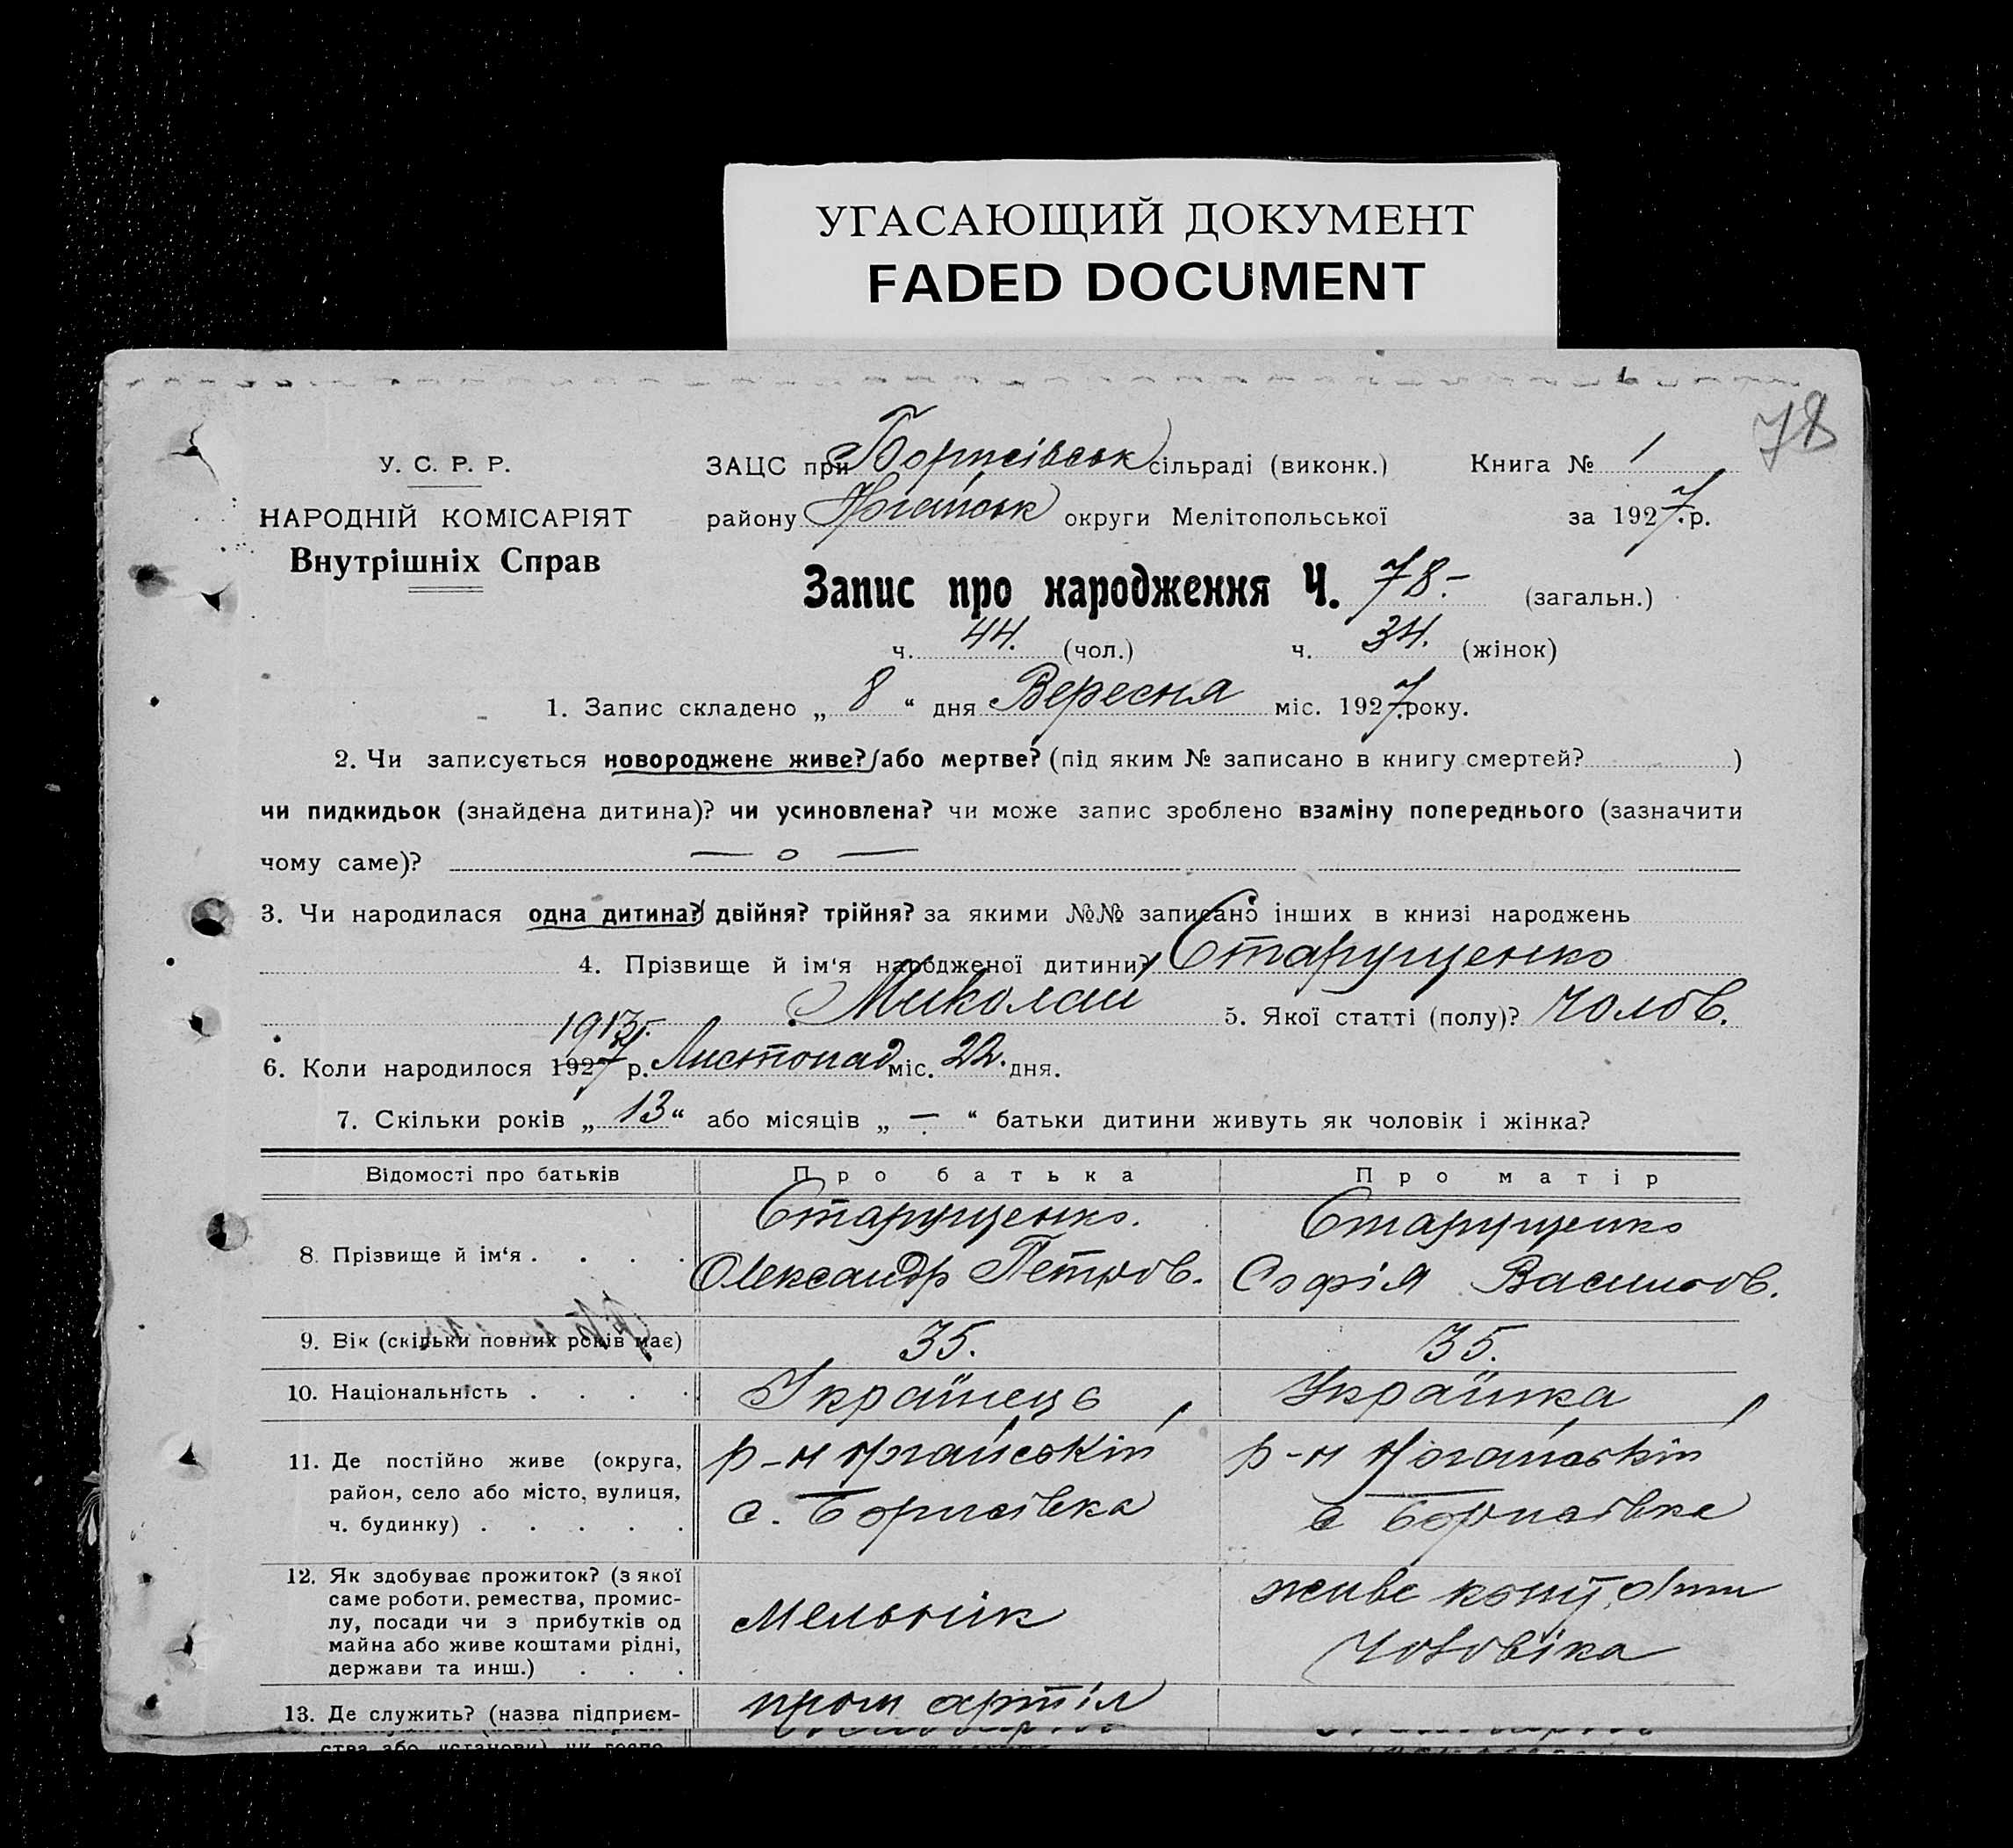 УГАСАЮЩИЙ ДОКУМЕНТ
FADED DOCUMENT
78
У. С. Р. Р.
НАРОДНІЙ КОМІСАРІЯТ
Внутрішніх Справ
ЗАЦС при Борисівськ сільраді (виконк.) Книга № 1
району Ногайськ округи Мелітопольської за 1927 р.
Запис про народження Ч. 78.- (загальн.)
ч. 44. (чол.) ч. 34. (жінок)
1. Запис складено „ 8 “ дня Вересня міс. 1927 року.
2. Чи записується новороджене живе? або мертве? (під яким № записано в книгу смертей? )
чи пидкидьок (знайдена дитина)? чи усиновлена? чи може запис зроблено взаміну попереднього (зазначити
чому саме)? — о —
3. Чи народилася одна дитина? двійня? трійня? за якими №№ записано інших в книзі народжень
4. Прізвище й ім‘я народженої дитини? Старущенко
Миколай 5. Якої статті (полу)? Чолов.
1913г.
6. Коли народилося 1927 р. Листопад міс. 22. дня.
7. Скільки років „ 13 “ або місяців „ — “ батьки дитини живуть як чоловік і жінка?
Відомості про батьків Про батька Про матір
8. Прізвище й ім‘я . . . . Старущенко. Старущенко
Олександр Петров. Софія Васильов.
9. Вік (скільки повних років має) 35. 35.
10. Національність . . . . Українець Українка
11. Де постійно живе (округа, район, село або місто, вулиця, ч. будинку) . . . . . р-н Ногайський р-н Ногайський
с. Борисівка с Борисівка
12. Як здобуває прожиток? (з якої
саме роботи, ремества, промис-
лу, посади чи з прибутків од
майна або живе коштами рідні,
держави та инш.) . . .
Мельник живе
Чоловіка
13. Де служить? (назва підприєм- пром артіл
ства або установи) чи госпо-